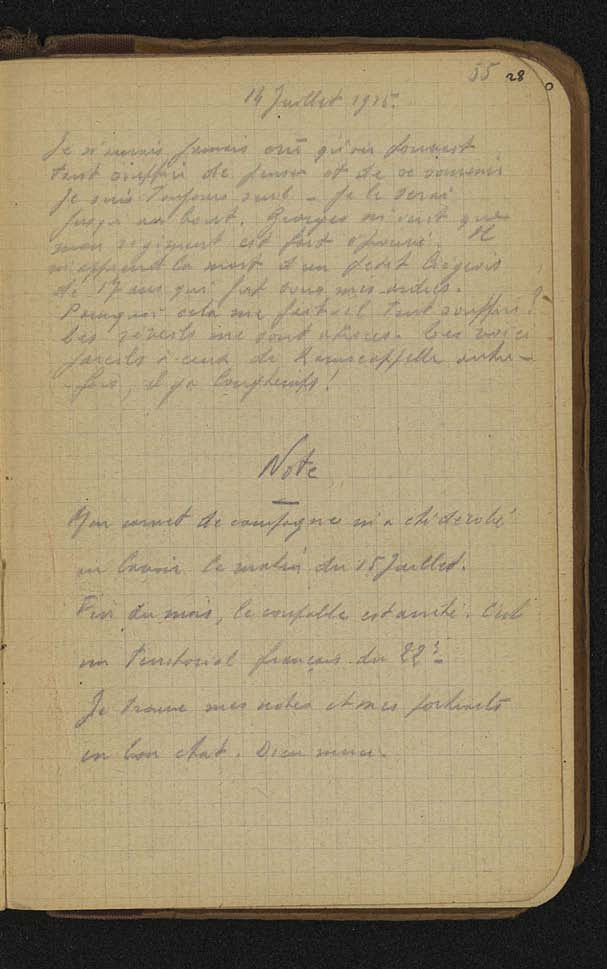 55 28
14 Juillet 1915.
Je n'aurais jamais cru qu'on pouvait
tant souffrir de penser et de se souvenir
Je suis toujours seul - Je le serai
jusqu'au bout. Georges m'écrit que
mon régiment est fort éprouvé. Il
m'apprend la mort d'un petit liégeois
de 17 ans qui fut sous mes ordres.
Pourquoi cela me fait-il tant souffrir?
Les réveils me sont atroces. Les voici
pareils à ceux de Ramscappelle autre-
-fois, il y a longtemps!
Note
Mon carnet de campagne m'a été dérobé
au lavoir le matin du 15 Juillet.
Fin du mois, le coupable est arrêté. C'est
un Territorial français du 22e
Je trouve mes notes et mes portraits
en bon état. Dieu merci.